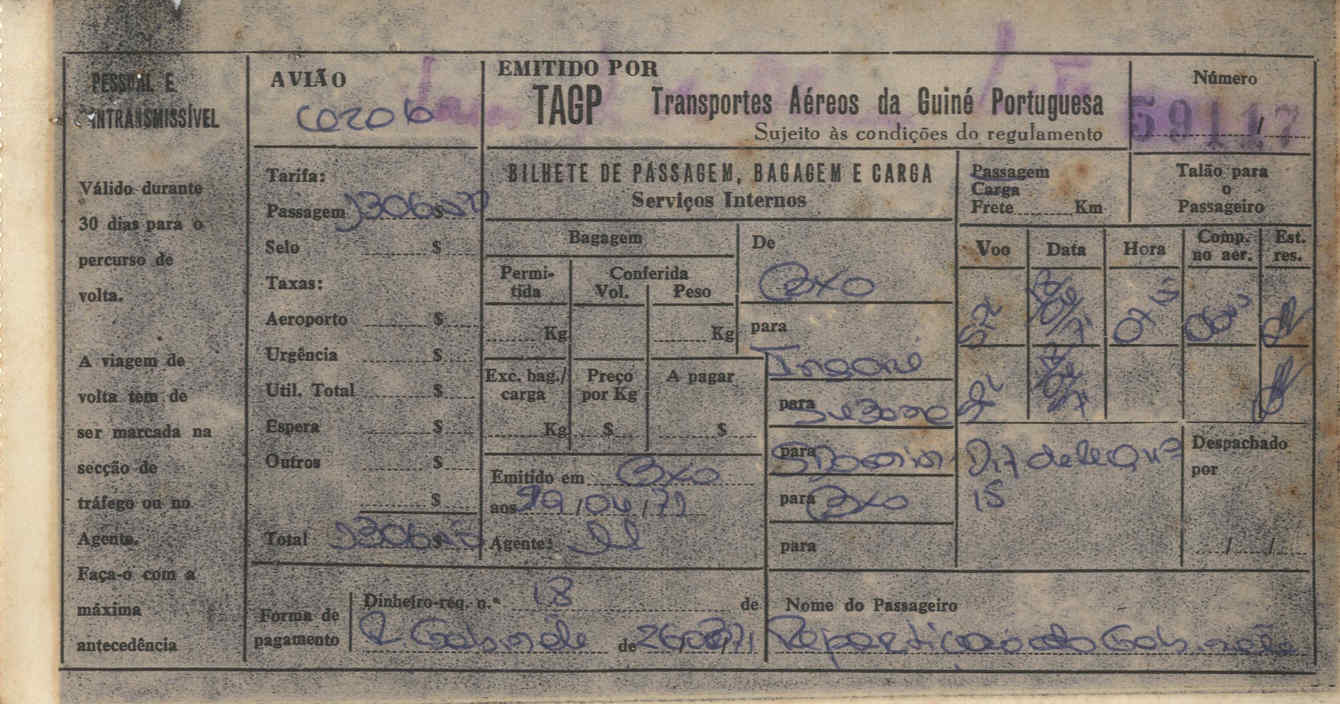 PESSOAL E
INTRANSMISSÍVEL
Válido durante
30 dias para o
percurso de
volta.
A viagem de
volta tem de
ser marcada na
secção de
tráfego ou no
Agente.
Faça-o com a
máxima
antecedência
AVIÃO
Tarifa:
Passagem $
Selo $
Taxas:
Aeroporto $
Urgência $
Util. Total $
Espera $
Outros $
$
Total $
EMITIDO POR
TAGP Transportes Aéreos da Guiné Portuguesa
Sujeito às condições do regulamento
Número
59117
BILHETE DE PASSAGEM, BAGAGEM E CARGA
Serviços Internos
Passagem
Carga
Frete Km
Talão para
o
Passageiro
Bagagem
Permitida
Conferida
Vol. Peso
Kg Kg
Exc. bag./
carga
Preço
por Kg
A pagar
Kg $ $
Emitido em Bxo
aos 29/04/71
Agente:
De
Bxo
para
Ingoré
para
para
para Bxo
para
Voo Data Hora Comp.
no aer. Est.
res.
Despachado
por
/ /
Forma de
pagamento
Dinheiro-req. n.º 18 de
R Gabinete de
Nome do Passageiro
Repartição do Gabinete